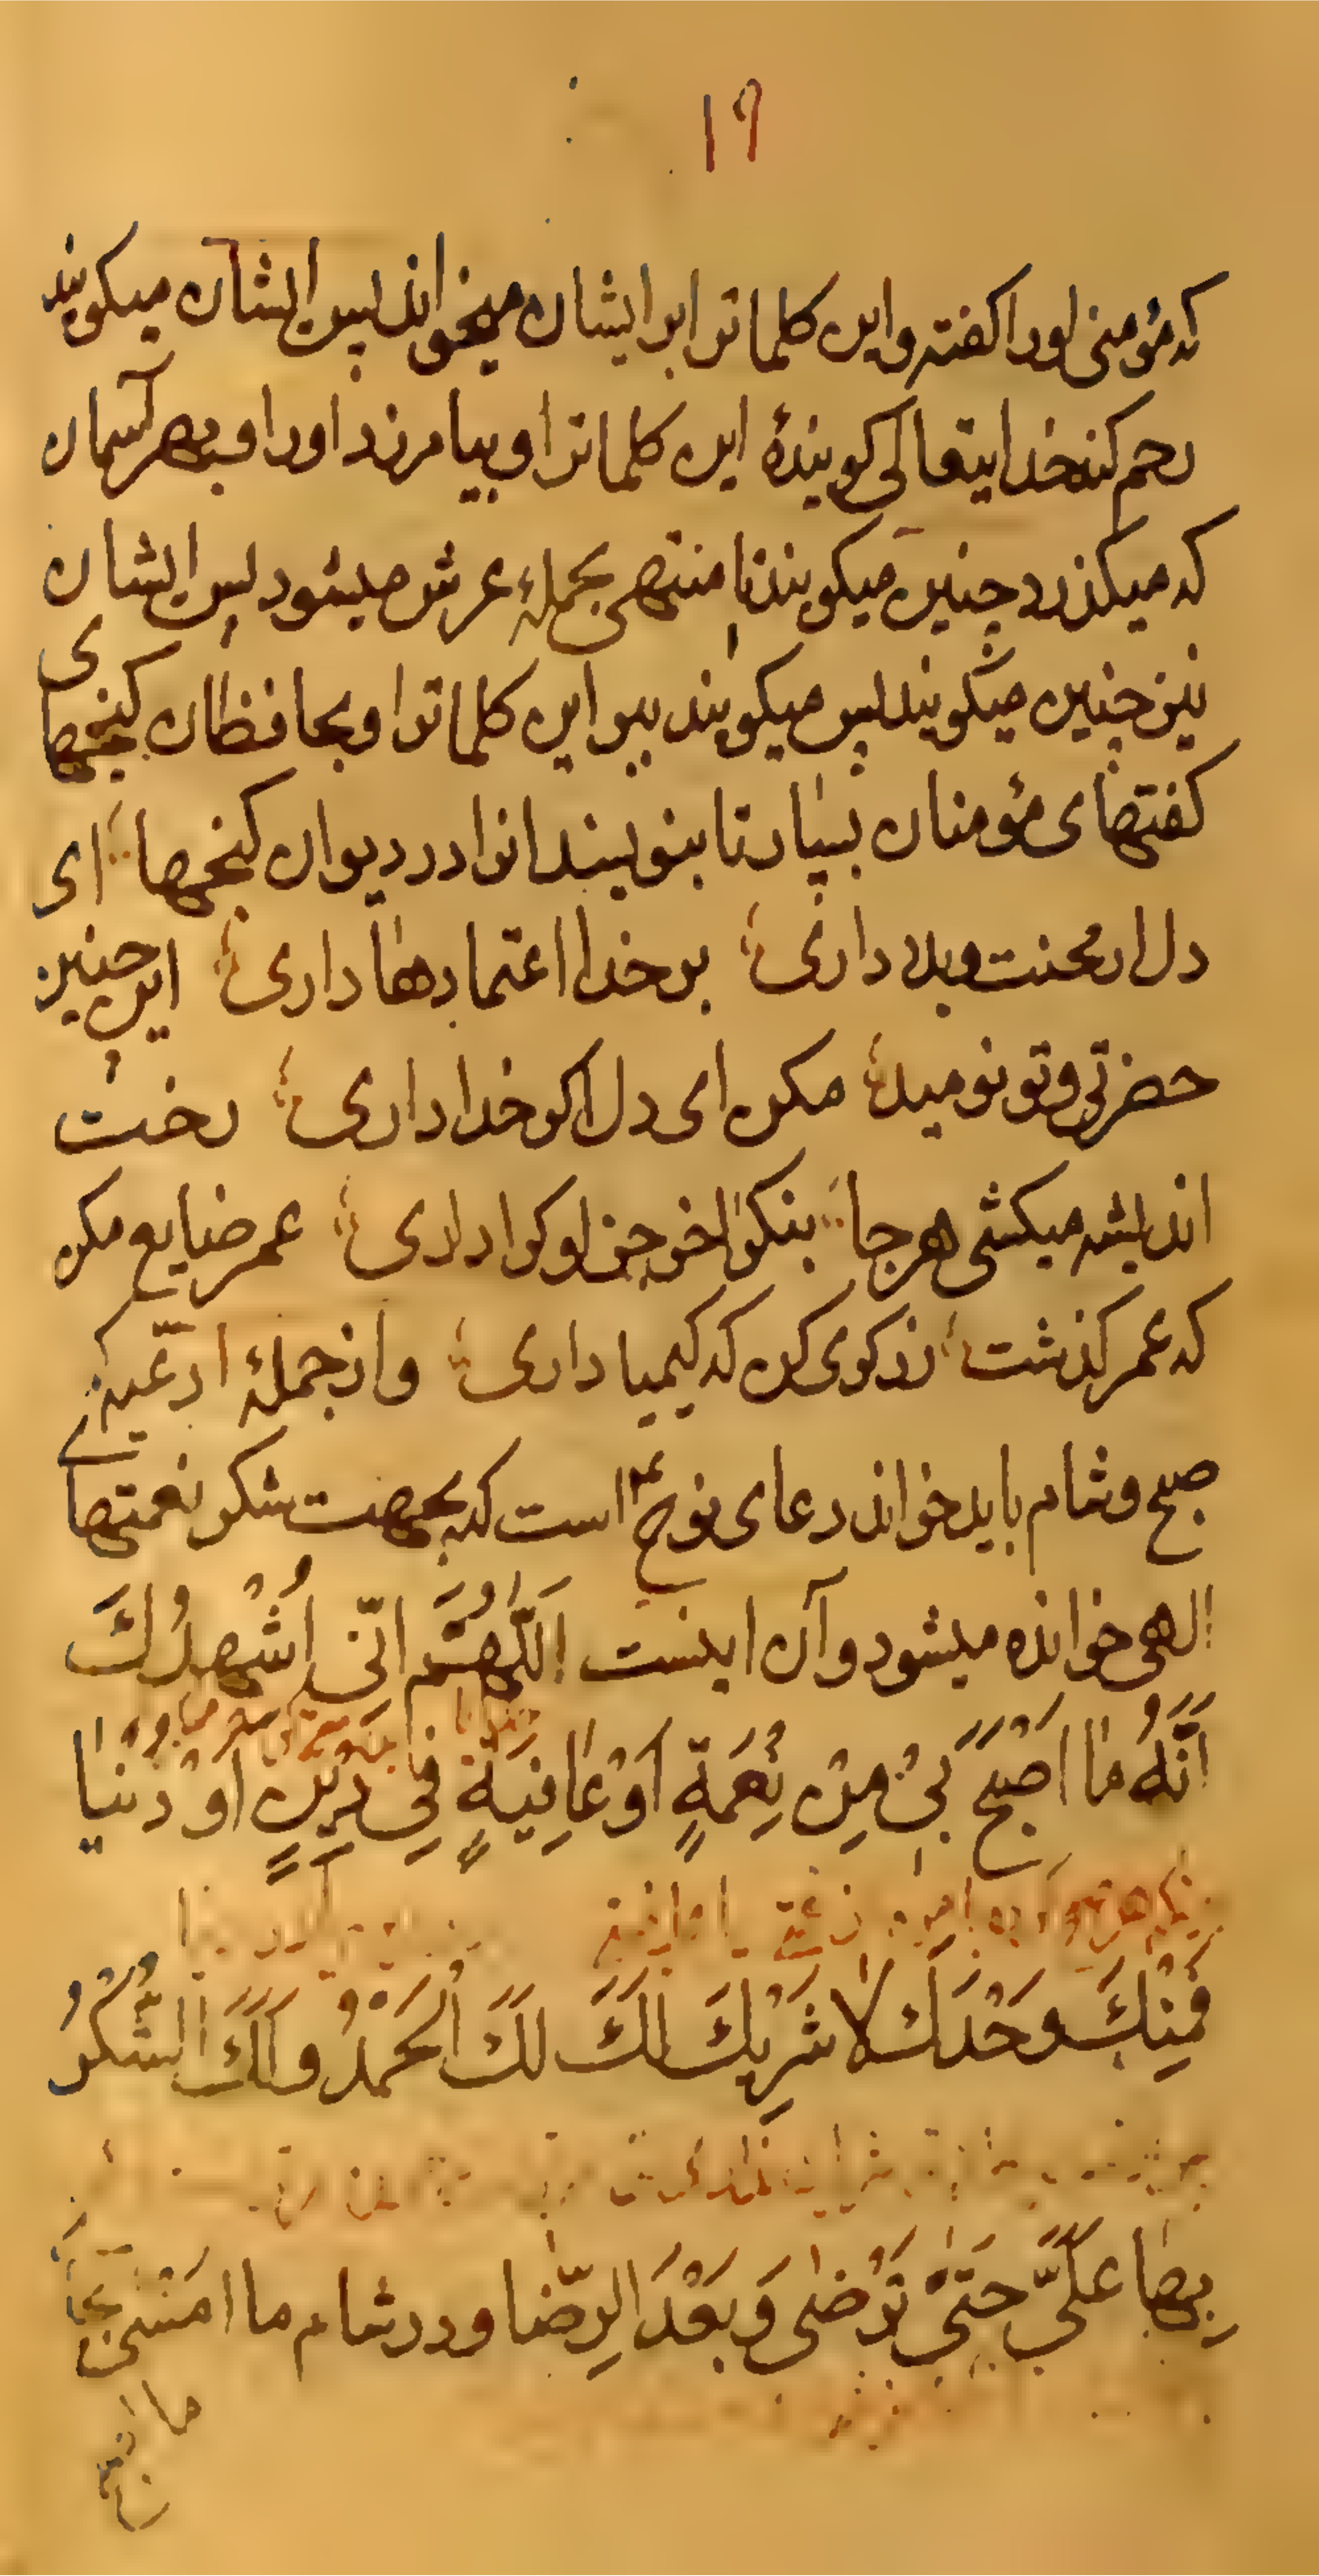 ١٩
که مؤمنی اورا کفته واین کلماترا بر ایشان میخواند پس ایشان میکویند
رحم کند خدایتعالی کویندهٔ این کلماترا و بیامرزد اورا و بهر آسمان
که میکذرد چنین میکویند تا منتهی بحملهٔ عرش میشود پس ایشان
نیز چنین میکویند پس میکویند ببر این کلماترا و بحافظان کنجهای
کفتهای مؤمنان بسپار تا بنویسند انرا در دیوان کنجها ای
دل ار محنت و بلا داری بر خدا اعتمادها داری این چنین
حضرتی و تو نومید مکن ای دل اکر خدا داری رخت
اندیشه میکشی هر جا بنکر اخر جز او کرا داری عمر ضایع مکن
که عمر کذشت زر کوی کن که کیمیا داری واز جملهٔ ادعیهٔ که
صبح وشام باید خواند دعای نوح است که بجهت شکر نعمتهای
الهی خوانده میشود و آن اینست اَللّٰهُمَّ اِنّی اُشْهِدُكَ
اَنَّهُ مٰا اَصْبَحَ بیْ مِنْ نِعْمَةٍ اَوْ عٰافِیَةٍ فِی دِینٍ اَوْ دُنْیٰا
فَمِنْكَ وَحْدَكَ لاٰ شَرِیْكَ لَكَ لَكَ الْحَمْدُ وَ لَكَ الشُّكْرُ
بِهٰا عَلَیَّ حَتّیٰ تَرْضٰی وَ بَعْدَ الرِّضٰا ودر شام ما امَسْیٰ بجای
ما اصبح